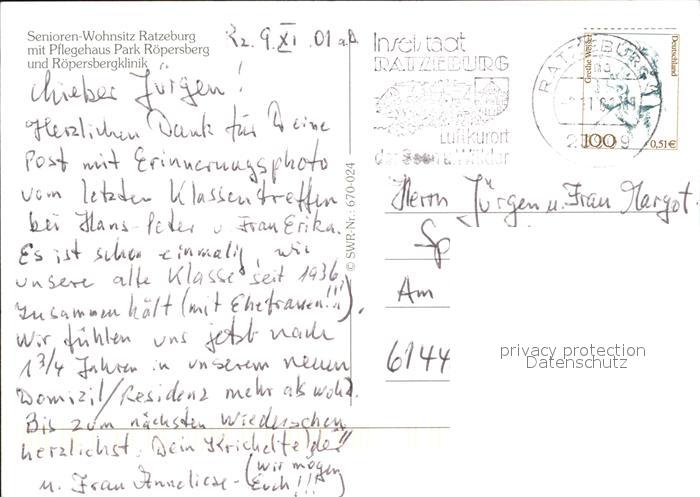 Senioren-Wohnsitz Ratzeburg
mit Pflegehaus Park Röpersberg
und Röpersbergklinik
Rz. 9.XI.01
Lieber Jürgen!
Herzlichen Dank für Deine
Post mit Erinnerungsphoto
vom letzten Klassentreffen
bei Hans-Peter u. Frau Erika.
Es ist schon einmalig, wie
unsere alte Klasse seit 1936
zusammenhält (mit Ehefrauen!!!).
Wir fühlen uns jetzt nach
1 3/4 Jahren in unserem neuen
Domizil/Residenz mehr als wohl.
Bis zum nächsten Wiedersehen
herzlichst, Dein
u. Frau Anneliese - (wir mögen
Euch!!!)
© SWR-Nr.: 670-024
Inselstadt
RATZEBURG
Luftkurort
der
RATZEBURG
Grethe Weiser
Deutschland
100
0,51€
Herrn Jürgen u. Frau Margot
Sp
Am
6144
privacy protection
Datenschutz